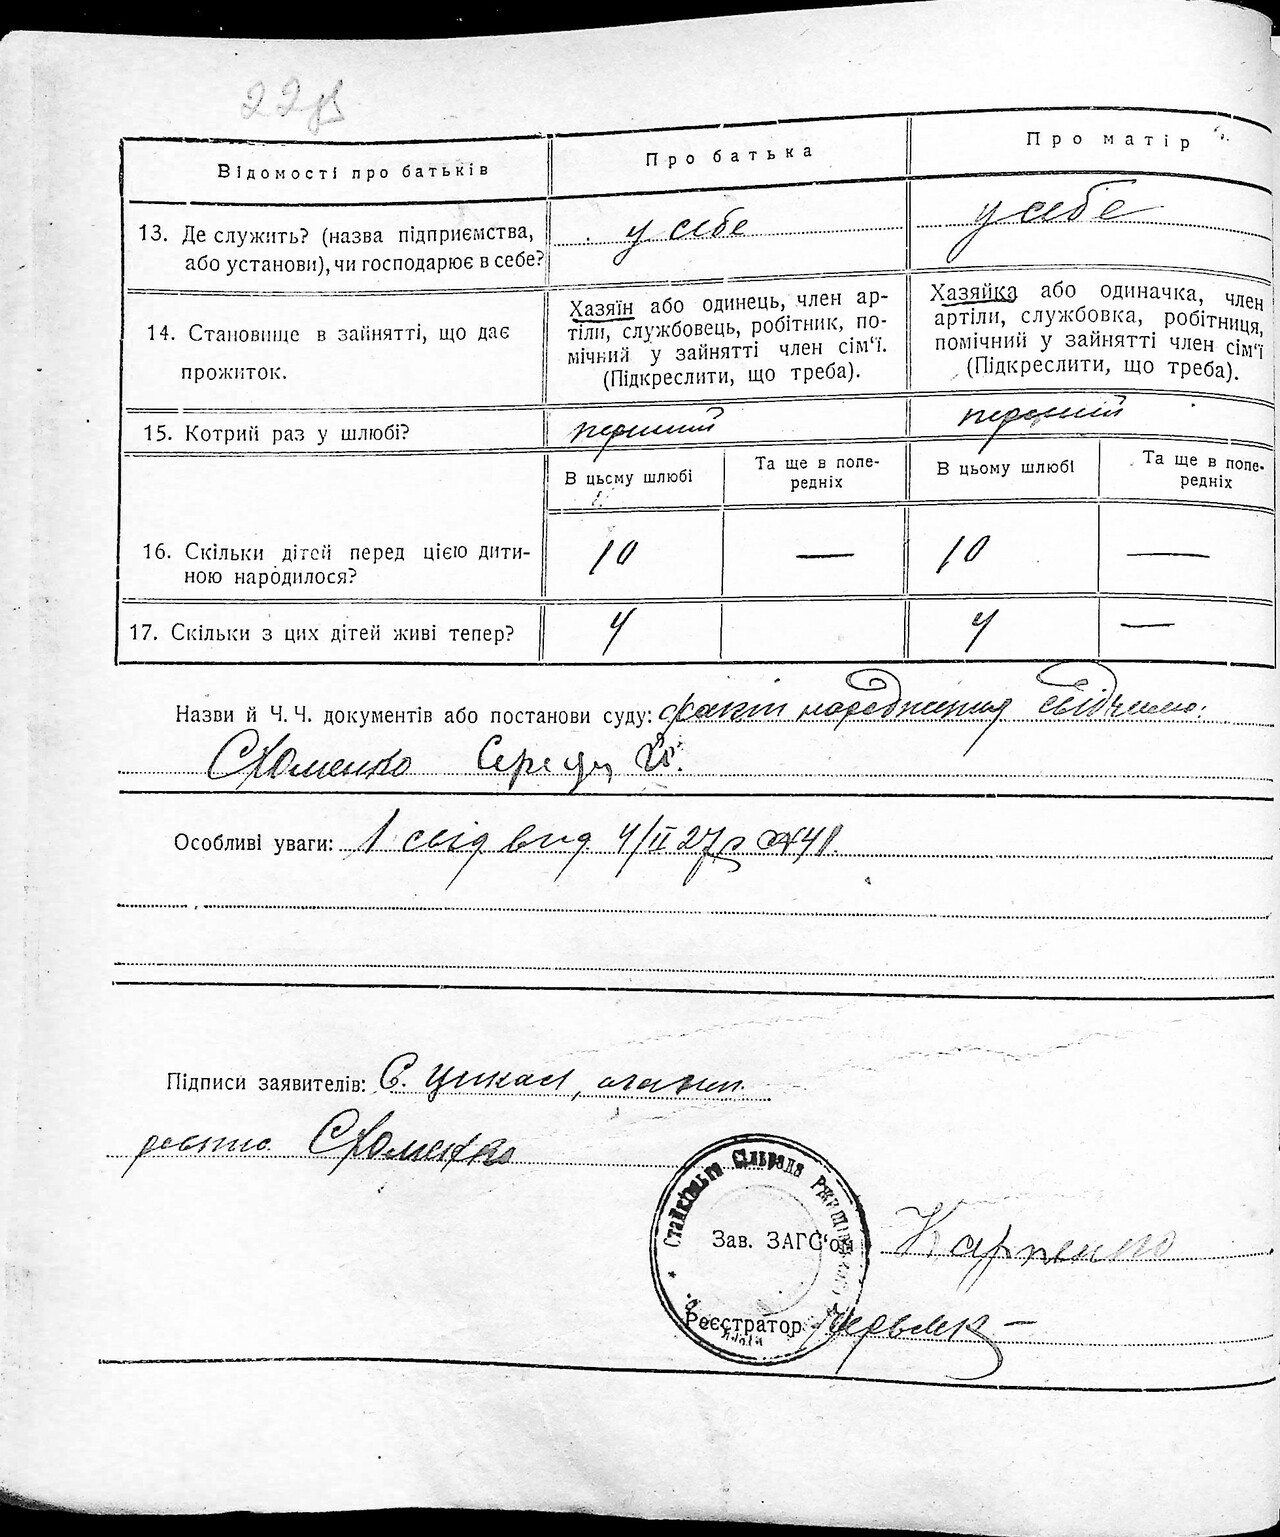 Відомості про батьків
Про батька
Про матір
13. Де служить? (назва підприємства,
або установи), чи господарює в себе?
у себе
у себе
14. Становище в зайнятті, що дає
прожиток.
Хазяїн або одинець, член ар-
тіли, службовець, робітник, по-
мічний у зайнятті член сім'ї.
(Підкреслити, що треба).
Хазяйка або одиначка, член
артіли, службовка, робітниця,
помічний у зайнятті член сім'ї
(Підкреслити, що треба).
15. Котрий раз у шлюбі?
перший
перший
В цьому шлюбі
Та ще в попе-
редніх
В цьому шлюбі
Та ще в попе-
редніх
16. Скільки дітей перед цією дити-
ною народилося?
10
—
10
—
17. Скільки з цих дітей живі тепер?
4
4
—
Назви й Ч. Ч. документів або постанови суду: факт народження свідчимо:
СХоменко Середа
Особливі уваги: 1 свід вид 4/II 27р №41.
Підписи заявителів: С. Цикал,
СХоменко
Стайківська Сільрада
Зав. ЗАГС'ом Карпенко
Реєстратор